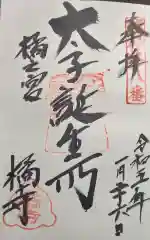 奉拝
太子誕生所
橘之宮
橘寺
令和五年
一月二十六日